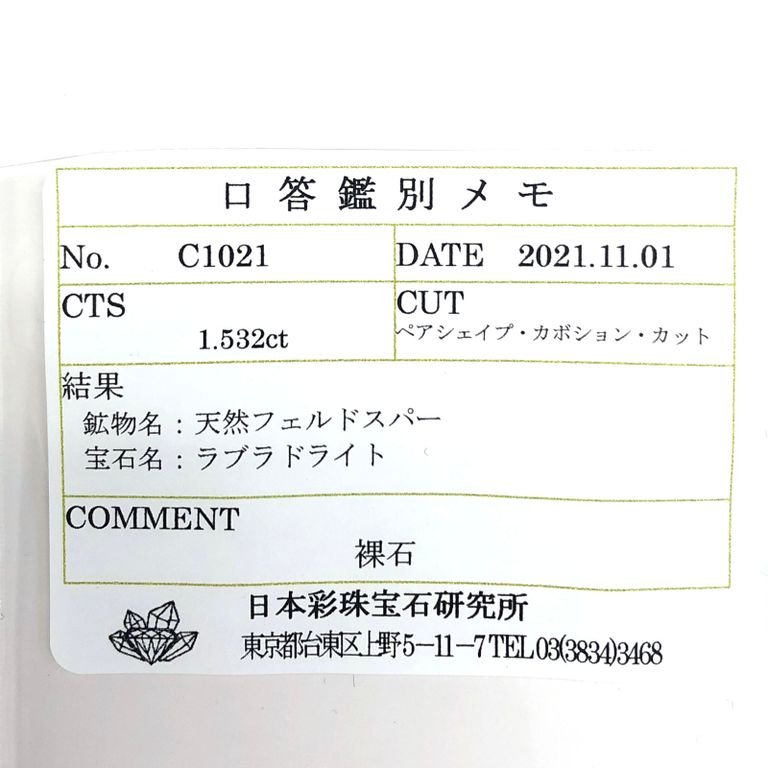 口答鑑別メモ
No. C1021
DATE 2021.11.01
CTS
1.532ct
CUT
ペアシェイプ・カボション・カット
結果
鉱物名：天然フェルドスパー
宝石名：ラブラドライト
COMMENT
裸石
日本彩珠宝石研究所
東京都台東区上野5-11-7 TEL 03(3834)3468